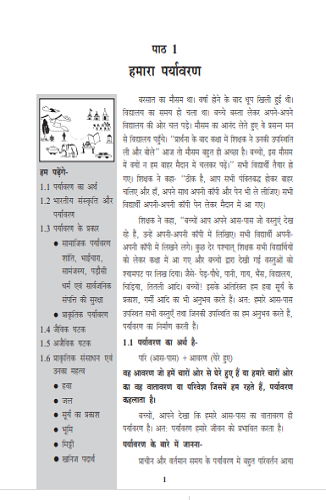 पाठ 1
हमारा पर्यावरण
हम पढ़ेंगे-
1.1 पर्यावरण का अर्थ
1.2 भारतीय संस्कृति और
पर्यावरण
1.3 पर्यावरण के प्रकार
● सामाजिक पर्यावरण
शांति, भाईचारा,
सामंजस्य, पड़ौसी
धर्म एवं सार्वजनिक
संपत्ति की सुरक्षा
● प्राकृतिक पर्यावरण
1.4 जैविक घटक
1.5 अजैविक घटक
1.6 प्राकृतिक संसाधन एवं
उनका महत्व
● हवा
● जल
● सूर्य का प्रकाश
● भूमि
● मिट्टी
● खनिज पदार्थ
बरसात का मौसम था। वर्षा होने के बाद धूप खिली हुई थी।
विद्यालय का समय हो चला था। बच्चे बस्ता लेकर अपने-अपने
विद्यालय की ओर चल पड़े। मौसम का आनंद लेते हुए वे प्रसन्न मन
से विद्यालय पहुँचे। प्रार्थना के बाद कक्षा में शिक्षक ने उनकी उपस्थिति
ली और बोले" आज तो मौसम बहुत ही अच्छा है। बच्चों, इस मौसम
में क्यों न हम बाहर मैदान में चलकर पढ़ें।" सभी विद्यार्थी तैयार हो
गए। शिक्षक ने कहा- "ठीक है, आप सभी पंक्तिबद्ध होकर बाहर
चलिए और हाँ, अपने साथ अपनी कॉपी और पेन भी ले लीजिए। सभी
विद्यार्थी अपनी-अपनी कॉपी और पेन लेकर मैदान में आ गए।
शिक्षक ने कहा, "बच्चों आप अपने आस-पास जो वस्तुएं देख
रहे है, उन्हें अपनी-अपनी कॉपी में लिखिए। सभी विद्यार्थी अपनी-
अपनी कॉपी में लिखने लगे। कुछ देर पश्चात् शिक्षक सभी विद्यार्थियों
को लेकर कक्षा में आ गए और बच्चों द्वारा देखी गई वस्तुओं को
श्यामपट पर लिख दिया। जैसे- पेड़-पौधे, पानी, गाय, भैंस, विद्यालय,
चिड़िया, तितली आदि। बच्चों! इसके अतिरिक्त हम हवा सूर्य के
प्रकाश, गर्मी आदि का भी अनुभव करते हैं। अत: हमारे आस-पास
उपस्थित सभी वस्तुएँ तथा जिनकी उपस्थिति का हम अनुभव करते है,
पर्यावरण का निर्माण करती है।
1.1 पर्यावरण का अर्थ है-
परि (आस-पास) + आवरण (घेरे हुए)
वह आवरण जो हमें चारों ओर से घेरे हुए हैं या हमारे चारों ओर
का वह वातावरण या परिवेश जिसमें हम रहते हैं, पर्यावरण
कहलाता है।
बच्चों, आपने देखा कि हमारे आस-पास का वातावरण ही
पर्यावरण है। अत: पर्यावरण हमारे जीवन को प्रभावित करता है।
पर्यावरण के बारे में जानना-
प्राचीन और वर्तमान समय के पर्यावरण में बहुत परिवर्तन आया
1